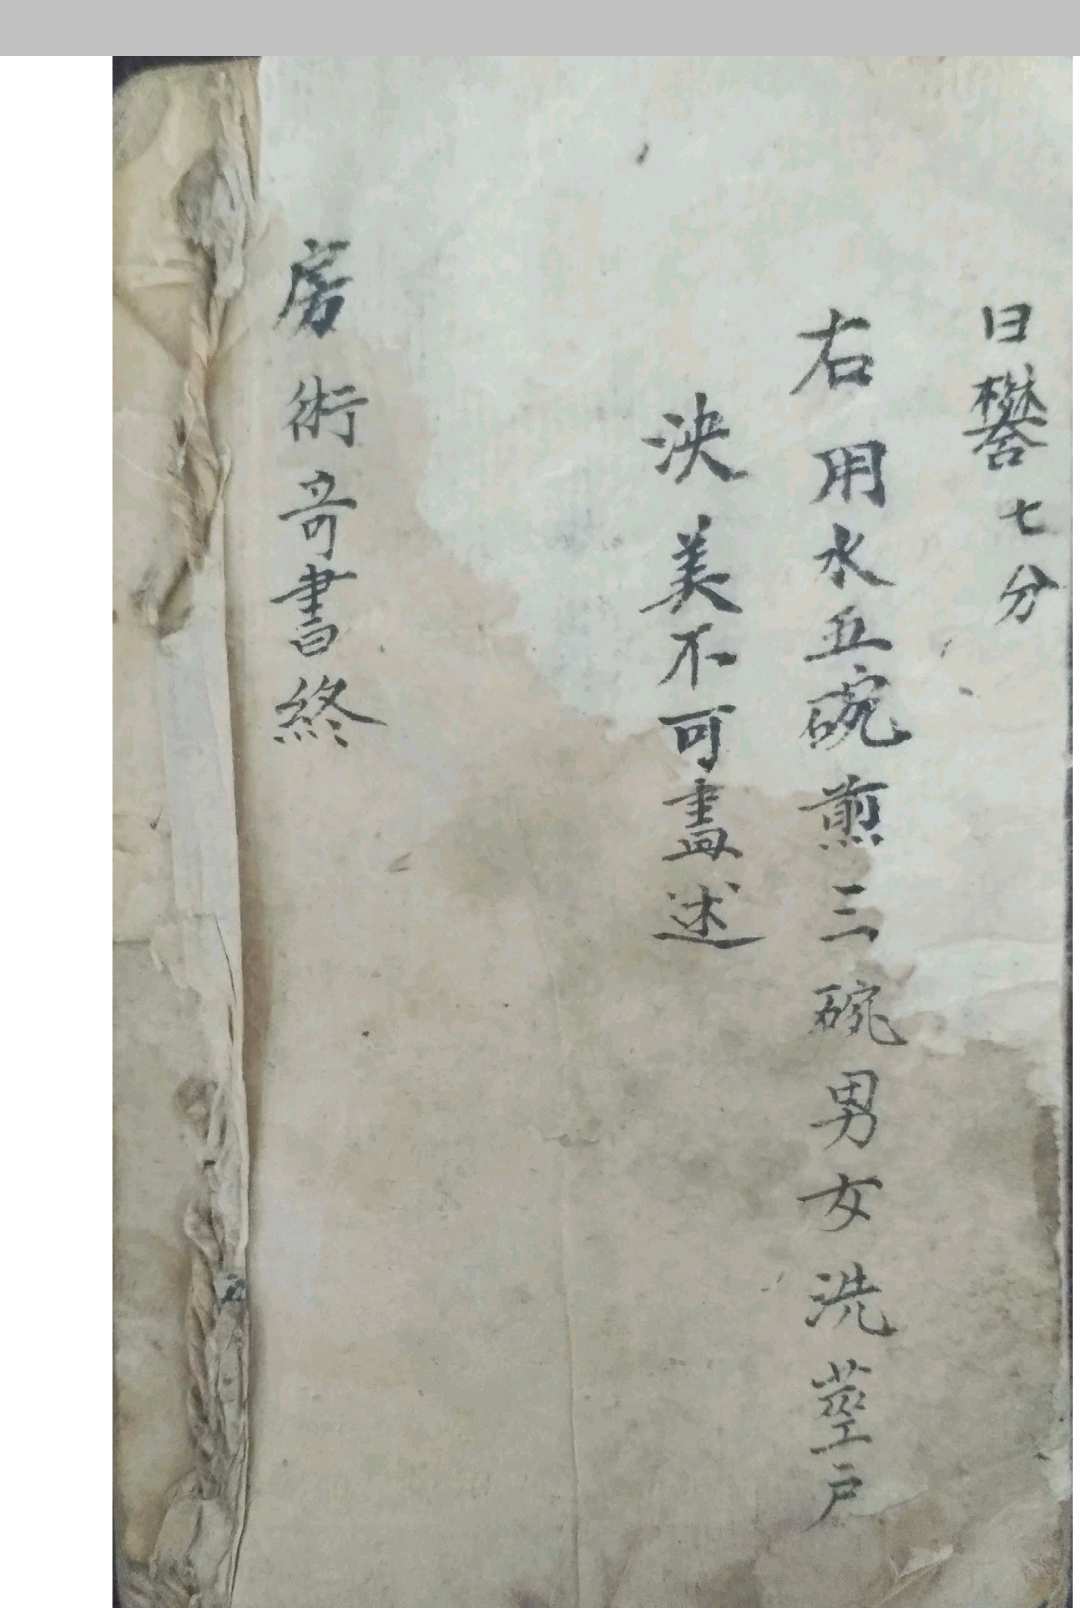 白礬七分
右用水五碗煎三碗男女洗莖戶
決美不可盡述
房術奇書終